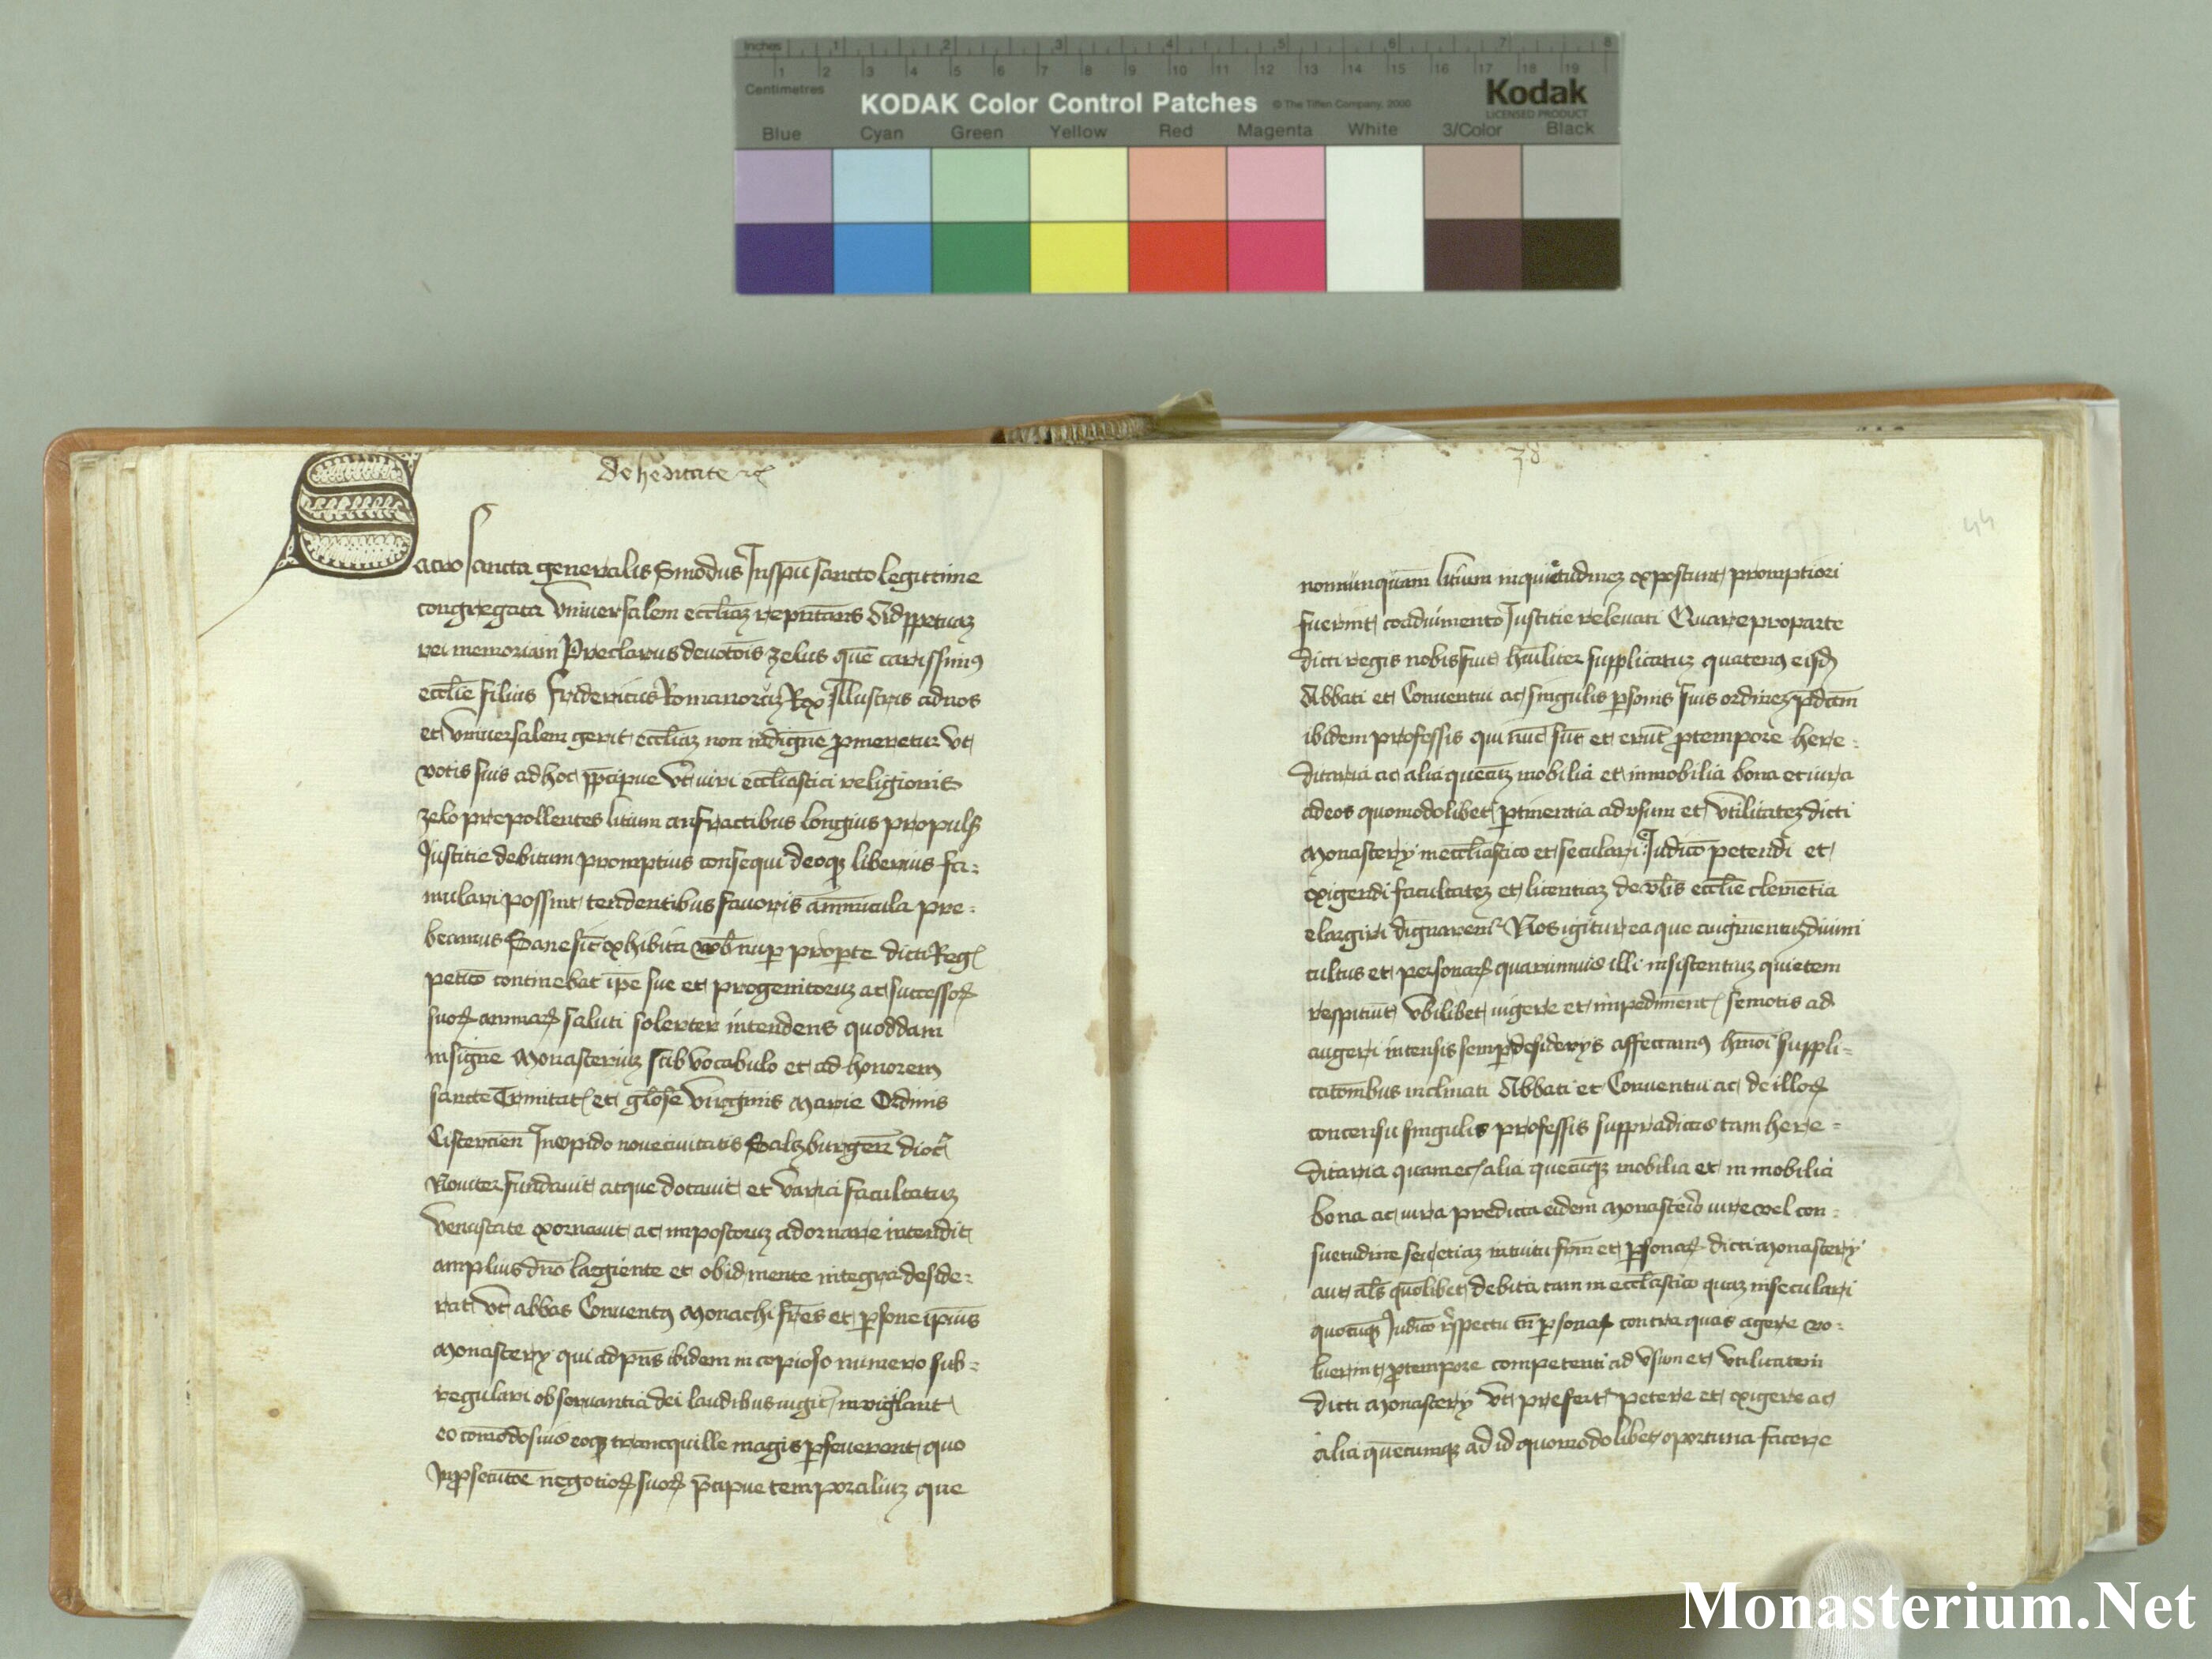 Inches 1 2 3 4 5 6 7 8
1 2 3 4 5 6 7 8 9 10 11 12 13 14 15 16 17 18 19
Centimetres
KODAK Color Control Patches © The Tiffen Company, 2000 Kodak
LICENSED PRODUCT
Blue Cyan Green Yellow Red Magenta White 3/Color Black
De hēditate
Sacrosancta generalis Sinodus In spū sancto legittime
congregata Vniuersalem eccliaz repn̄tans Ad ꝑpetuaz
rei memoriam Preclarus deuotōis zelus quē carissimꝰ
ecclīe filius Fridericus Romanoruz Rex Illustris ad nos
et Vniuersalem gerit eccliaz non indigne ꝓmeretur vt
votis suis ad hoc p̄cipue vt viri eccliastici religionis
zelo prepollentes litium anfractibus longius propulsꝭ
Justitie debitum promptius consequi deoqꝫ liberius fa⸗
mulari possint tendentibus fauoris am̄inicula pre⸗
beamus Sane sic̄ exhibita nob̄ nuꝑ pro ꝑte dicti Reg
petic̄o continebat ip̄e sue et progenitoruz ac successoꝝ
suoꝝ animaꝝ saluti solerter intendens quoddam
insigne Monasteriuz sub vocabulo et ad honorem
sancte Trinitat et glo͞se Virginis Marie Ordinis
Cistercien̄ In opido noue ciuitatis Salczburgen̄ dioc̄
Nouiter fundauit atque dotauit et varia facultatuz
venustate exornauit ac imposteruz adornare intendit
amplius dn̄o largiente et ob id mente integra deside⸗
rat vt abbas Conuentꝰ Monachi fr̄es et ꝑsone ip̄ius
Monastery qui ad pn̄s ibidem in copioso numero sub⸗
regulari obseruantia dei laudibus iugit inuigilant
eo comōdosius eoqꝫ trancquille magis ꝑseuerent quo
In ꝓsecutōe negotioꝝ suoꝝ p̄cipue temporaliuz que
38
44
nonnunquam litium inquietudinez exposcunt promptiori
fuerint coadiumento Justitie releuati Quare pro parte
dicti regis nobis fuit hūiliter supplicatuz quatenꝰ eisd
Abbati et Conuentui ac singulis ꝑsonis suis ordinez p̄dcm̄
ibidem professis qui nūc sūt et erūt ꝓ tempore here⸗
ditaria ac alia quecūqꝫ mobilia et inmobilia bona et iura
ad eos quomodolibet ꝑtinentia ad vsum et vtilitatez dicti
Monastery in eccliastico et seculari Judic̄o petendi et
exigendi facultatez et licentiaz de vl̄is ecclīe clemētia
elargiri dignarem̄ Nos igitur ea que augmentuz diuini
cultus et personaꝝ quarumuis illi insistentiuz quietem
respiciūt vbilibet vigere et impediment semotis ad
augeri intensis semꝑ desiderys affectamꝰ hmōi suppli⸗
catōnibus inclinati Abbati et Conuentui ac de illoꝝ
concensu singulis professis suppradictis tam here⸗
ditaria quam ec alia quecūqꝫ mobilia et in mobilia
bona ac iura predicta eidem Monasterio iure vel con⸗
suetudine seu etiaz intuitu fr̄m et ꝑsonaꝝ dicti Monastery
aut al̄s quolibet debita tam in eccliastico quaz in seculari
quocūqꝫ Judic̄o respectu tn̄ ꝑsonaꝝ contra quas agere vo⸗
luerint ꝓ tempore competenti ad vsum et vtilitatem
dicti Monastery vt prefert petere et exigere ac
alia quecumqꝫ ad id quomodolibet oportuna facere
Monasterium.Net